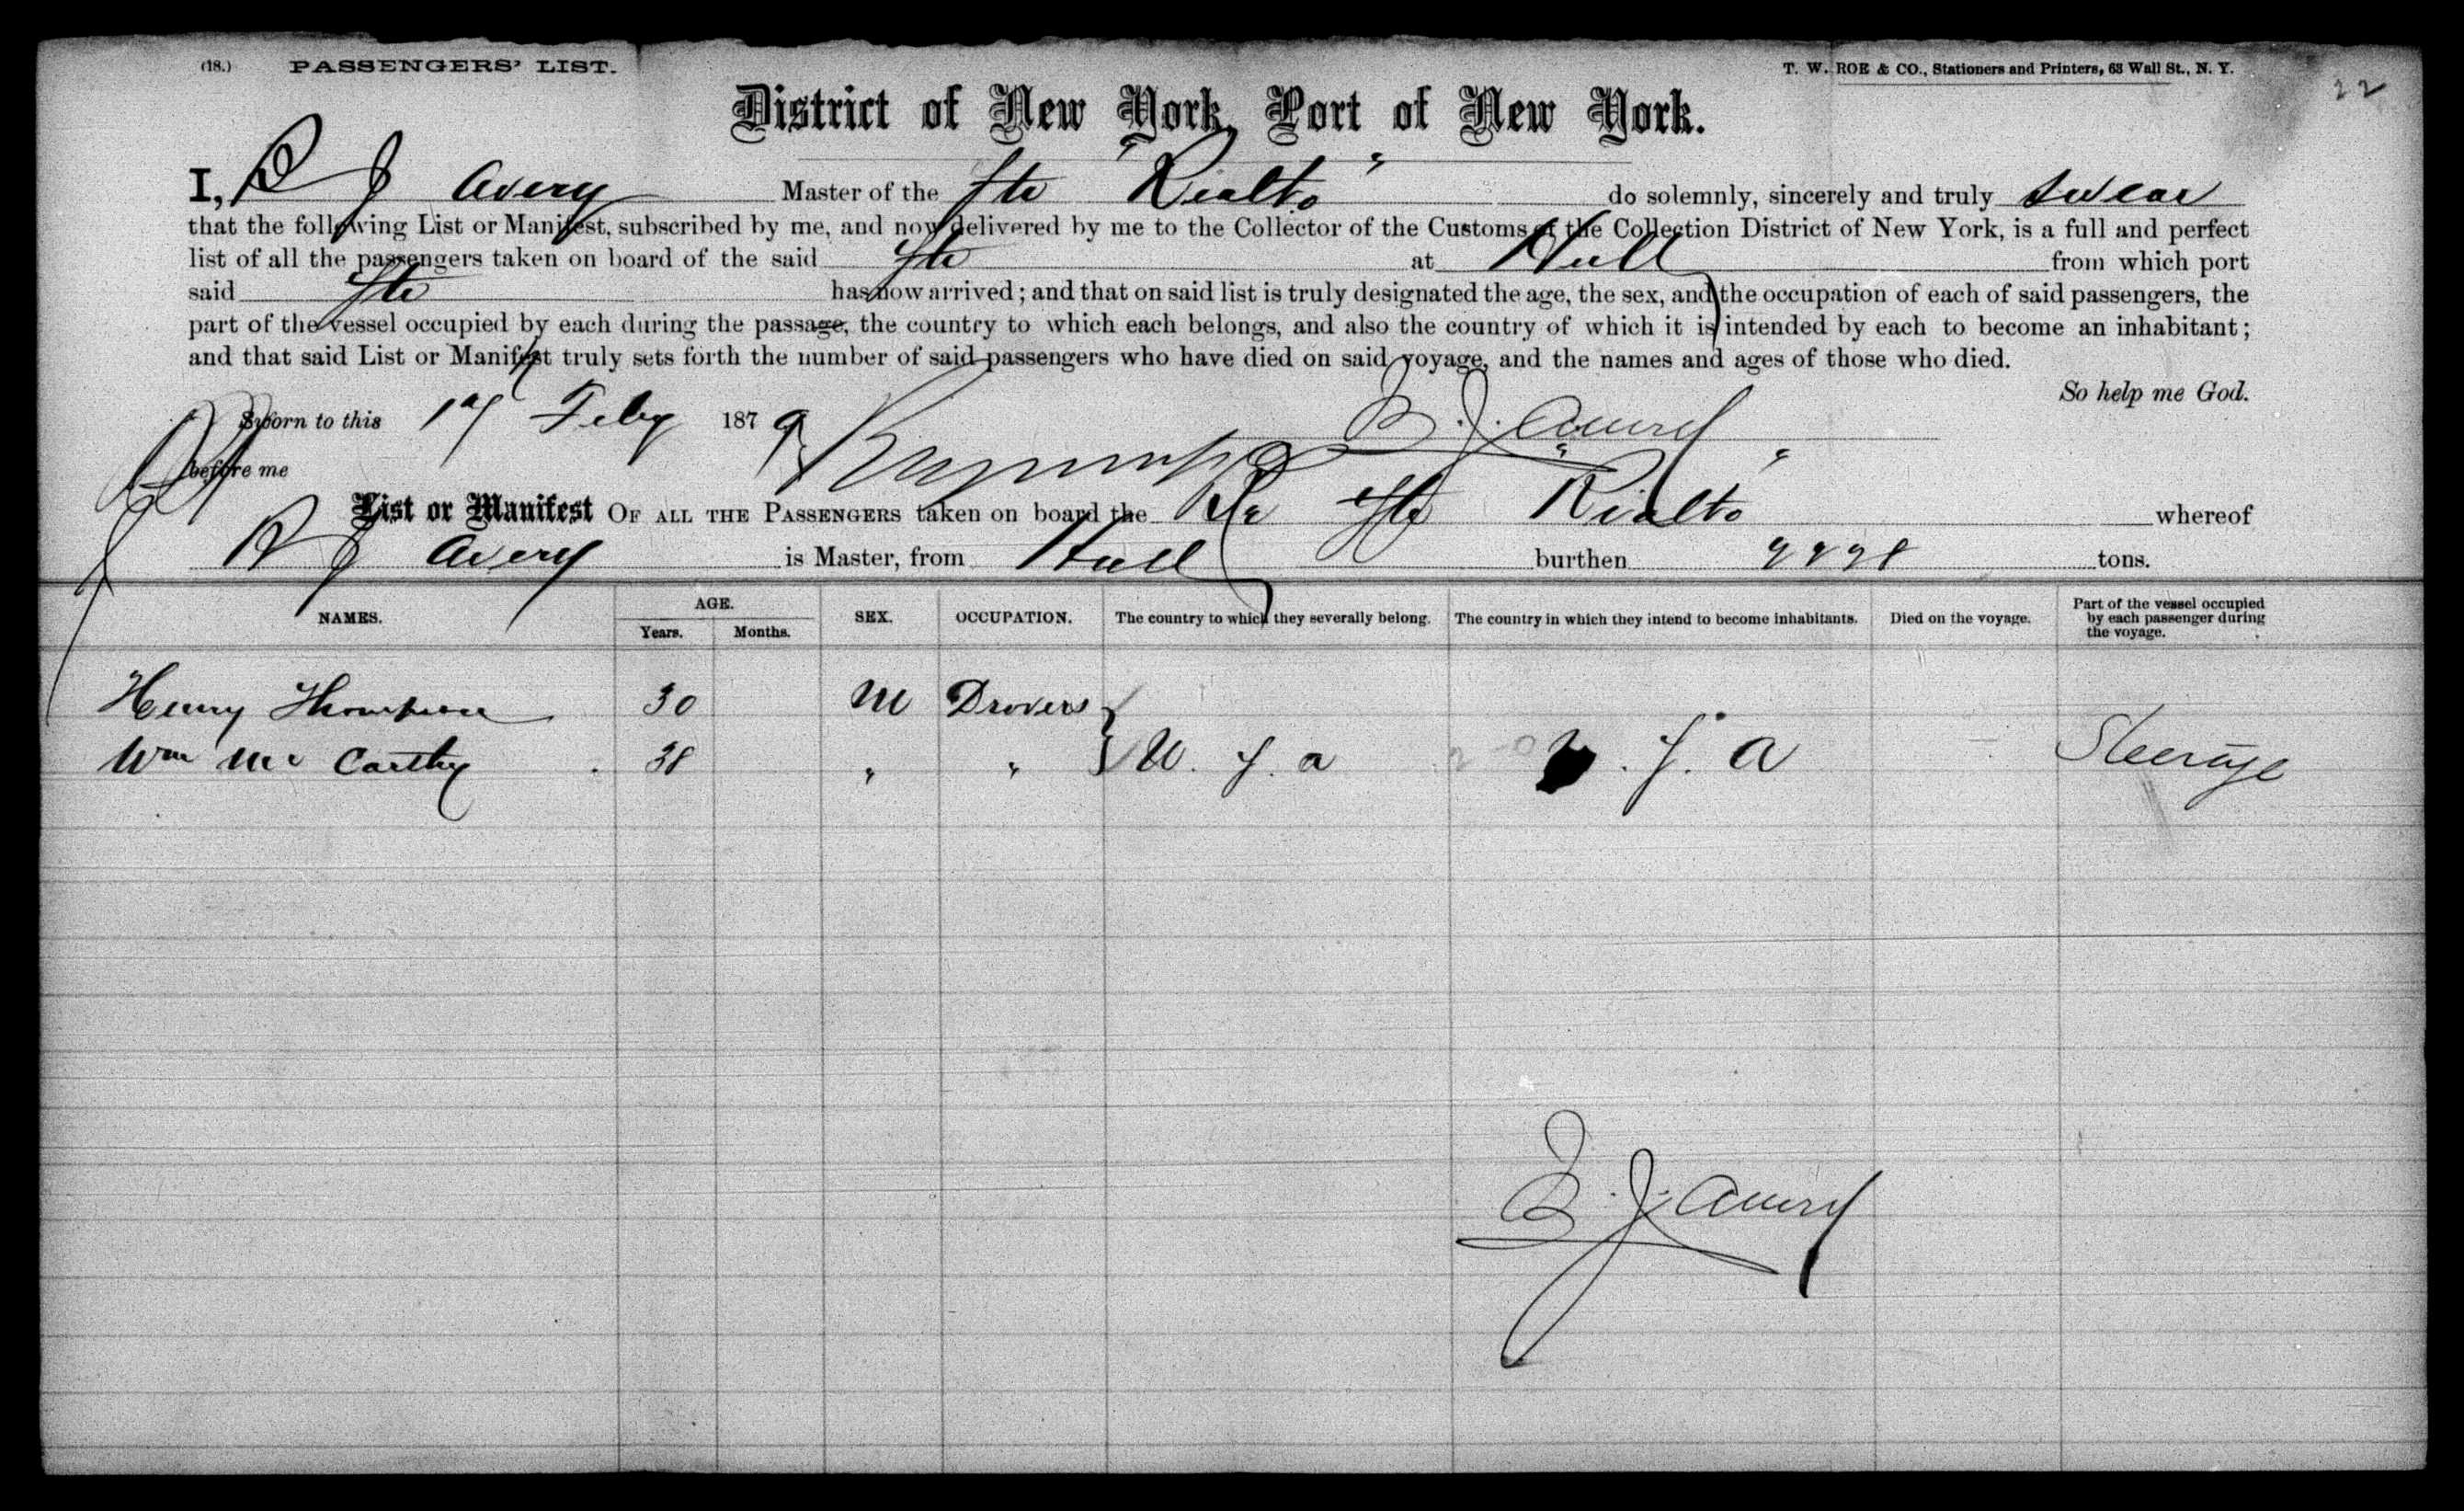 (18.) PASSENGERS' LIST. T. W. ROE & CO., Stationers and Printers, 63 Wall St., N. Y. 22
District of New York, Port of New York.
I, B J Avery Master of the Str "Rialto" do solemnly, sincerely and truly swear
that the following List or Manifest, subscribed by me, and now delivered by me to the Collector of the Customs of the Collection District of New York, is a full and perfect
list of all the passengers taken on board of the said Str at Hull from which port
said Str has now arrived; and that on said list is truly designated the age, the sex, and the occupation of each of said passengers, the
part of the vessel occupied by each during the passage, the country to which each belongs, and also the country of which it is intended by each to become an inhabitant;
and that said List or Manifest truly sets forth the number of said passengers who have died on said voyage, and the names and ages of those who died.
So help me God.
Sworn to this Feby 1879 B. J. Avery
before me
List or Manifest OF ALL THE PASSENGERS taken on board the Br Str "Rialto" whereof
B J Avery is Master, from Hull burthen tons.
NAMES. AGE. Years. Months. SEX. OCCUPATION. The country to which they severally belong. The country in which they intend to become inhabitants. Died on the voyage. Part of the vessel occupied by each passenger during the voyage.
Henry Thompson 30 M Drovers
Wm McCarthy 38 " " U. S. A U. S. A Steerage
B. J. Avery